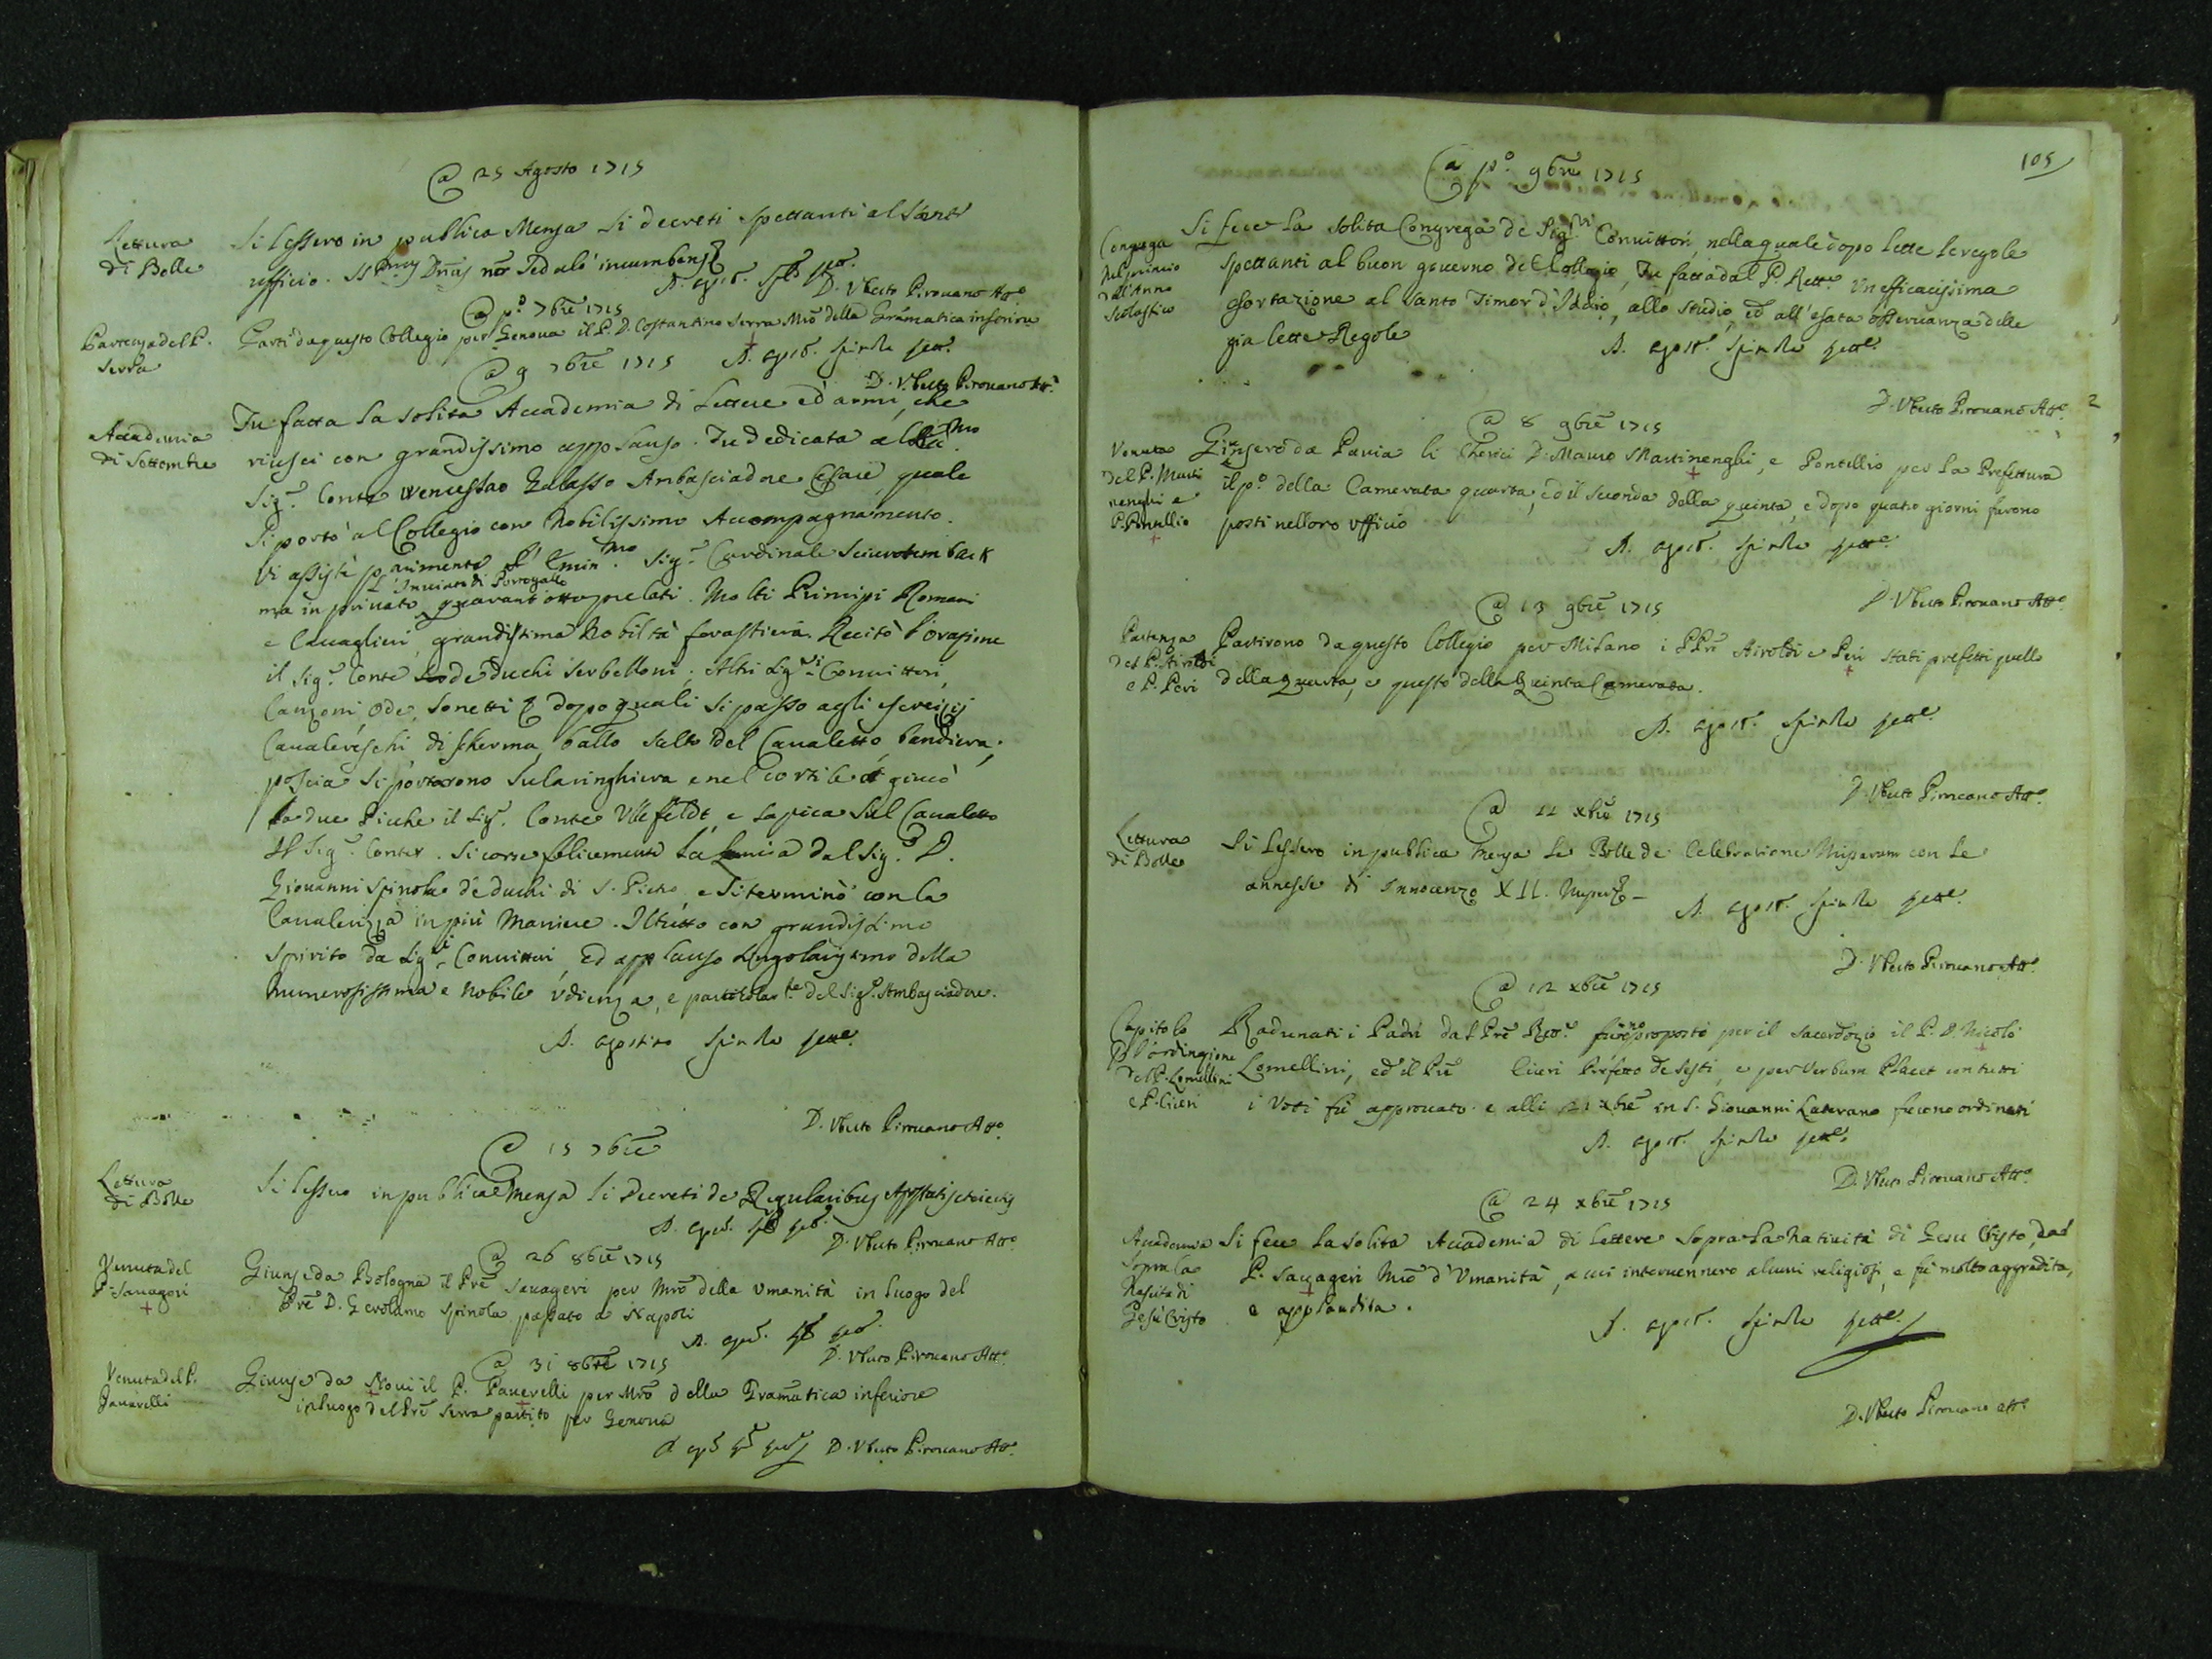 @ 25 Agosto 1715
Lettura
di Bolle
Si lessero in publica Mensa li decreti spettanti al Santo
ufficio. SSmus Dnus nr Sedulò incumbens &
D. Uberto Pirovano Atto
@ po 7bre 1715
Partenza del P.
Serra
Partì da questo Collegio per Genova il P. D. Costantino Serra Mro della Gramatica inferiore
D. agost. Spinola Rett.
D. Uberto Pirovano Atto
@ 9 7bre 1715
Accademia
di Settembre
Fu fatta la solita Accademia di Lettere ed armi, che
riuscì con grandissimo applauso. Fu dedicata al
Sigr Conte Wenceslao Galasso Ambasciadore Cesareo, quale
si portò al Collegio con Nobilissimo Accompagnamento.
Vi assistè parimente l'Eminmo Sigr Cardinale
L'Inviato di Portogallo
ma in privato quarantotto prelati. Molti Principi Romani
e Cavaglieri, grandissima Nobiltà forastiera. Recitò l'orazione
il Sigr Conte de Duchi Serbelloni. Altri Sigri Convittori,
Canzoni, Ode, Sonetti & dopo quali si passò agli esercizj
Cavalereschi di scherma, ballo salto del Cavaletto, bandiera,
poscia si portorono su la ringhiera e nel cortile giucò
le due Picche il Sigr Conte Vlefeldt, e la pica sul Cavaletto
Il Sigr Conte. Si corse felicemente la Lancia dal Sigr D.
Giovanni Spinola de duchi di S. Pietro, e si terminò con la
Cavalerizza in più Maniere. Il tutto con grandissimo
Spirito da Sigri Convittori, ed applauso singolarissimo della
Numerosissima e Nobile Udienza, e particolarte del Sigr Ambasciadore.
D. Agostino Spinola Rette
D. Uberto Pirovano Atto
@ 15 7bre
Lettura
di Bolle
Si lessero in publica Mensa li Decreti de Regularibus Apostatis et eiectis
D. Uberto Pirovano Atto
@ 26 8bre 1715
Venuta del
P. Savageri
Giunse da Bologna il Pre Savageri per Mro della Umanità in luogo del
Pre D. Gerolamo Spinola passato a Napoli
D. Uberto Pirovano Atto
@ 31 8bre 1715
Venuta del P.
Panerelli
Giunse da Novi il P. Panerelli per Mro della Gramatica inferiore
in luogo del Pre Serra partito per Genova
D. Uberto Pirovano Atto
105
@ po 9bre 1715
Congrega
nel principio
dell'Anno
Scolastico
Si fece la solita Congrega de Sigri Convittori, nella quale dopo lette le regole
spettanti al buon governo del Collegio, Fu fatta dal P. Rettre un efficacissima
esortazione al santo Timor d'Iddio, allo studio, ed all'esata osservanza delle
già lette Regole
D. agost. Spinola Rette
D. Uberto Pirovano Atto
2
@ 8 9bre 1715
Venuta
del P. Marti
nenghi e
P. Pontellio
Ginsero da Pavia li Cherici D. Mauro Martinenghi, e Pontellio per la Prefettura
il po della Camerata quarta, ed il secondo della quinta, e dopo quatro giorni furono
posti nel loro Ufficio
D. agost. Spinola Rette
D. Uberto Pirovano Atto
@ 13 9bre 1715
Partenza
del P. Airoldi
e P. Peri
Partirono da questo Collegio per Milano i PPri Airoldi e Peri stati prefetti quello
della quarta, e questo della Quinta Camerata.
D. agost. Spinola Rette
D. Uberto Pirovano Atto
@ 11 xbre 1715
Lettura
di Bolle
Si lessero in publica Mensa le Bolle de Celebratione Missarum con le
annesse di Innocenzo XII. Nuper &
D. agost. Spinola Rette
D. Uberto Pirovano Atto
@ 12 xbre 1715
Capitolo
p l'ordinazione
del P. Lomellini
e P. Ciceri
Radunati i Padri dal Pre Rettre furono proposti per il sacerdozio il P. D. Nicolò
Lomellini, ed il Pre Ciceri Prefetto de Sesti, e per Verbum Placet con tutti
i Voti fù approvato e alli 21 xbre in S. Giovanni Laterano furono ordinati
D. agost. Spinola Rette
D. Uberto Pirovano Atto
@ 24 xbre 1715
Accademia
sopra la
Nascita di
Gesù Cristo
Si fece la solita Accademia di Lettere sopra la Natività di Gesu Cristo, dal
P. Savageri Mro d'Umanità, a cui intervennero alcuni religiosi, e fù molto aggradita,
e applaudita.
D. agost. Spinola Rette
D. Uberto Pirovano Atto